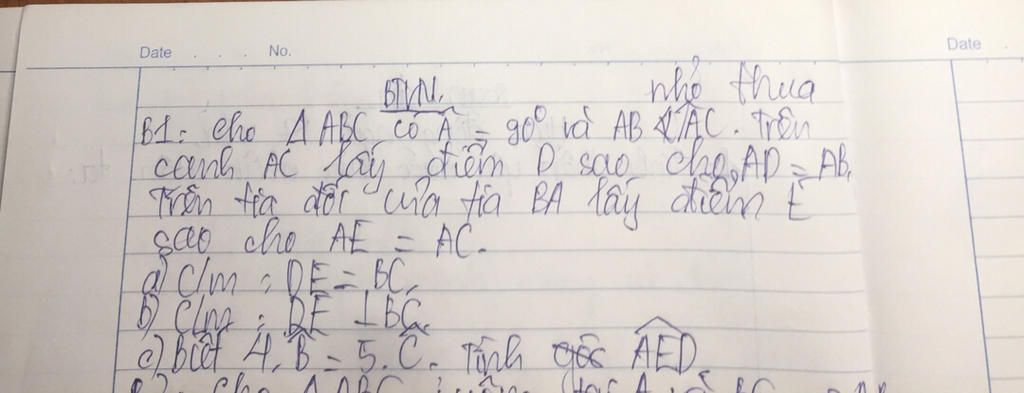 Date . . . . No.
Date .
BTVN. nhỏ thua
B1: cho Δ ABC có Â = 90° và AB < AC. Trên
cạnh AC lấy điểm D sao cho AD = AB.
Trên tia đối của tia BA lấy điểm E
sao cho AE = AC.
a) C/m : DE = BC.
b) C/m : DE ⊥ BC.
c) Biết 4. B̂ = 5. Ĉ. Tính góc AED
cho Δ ABC